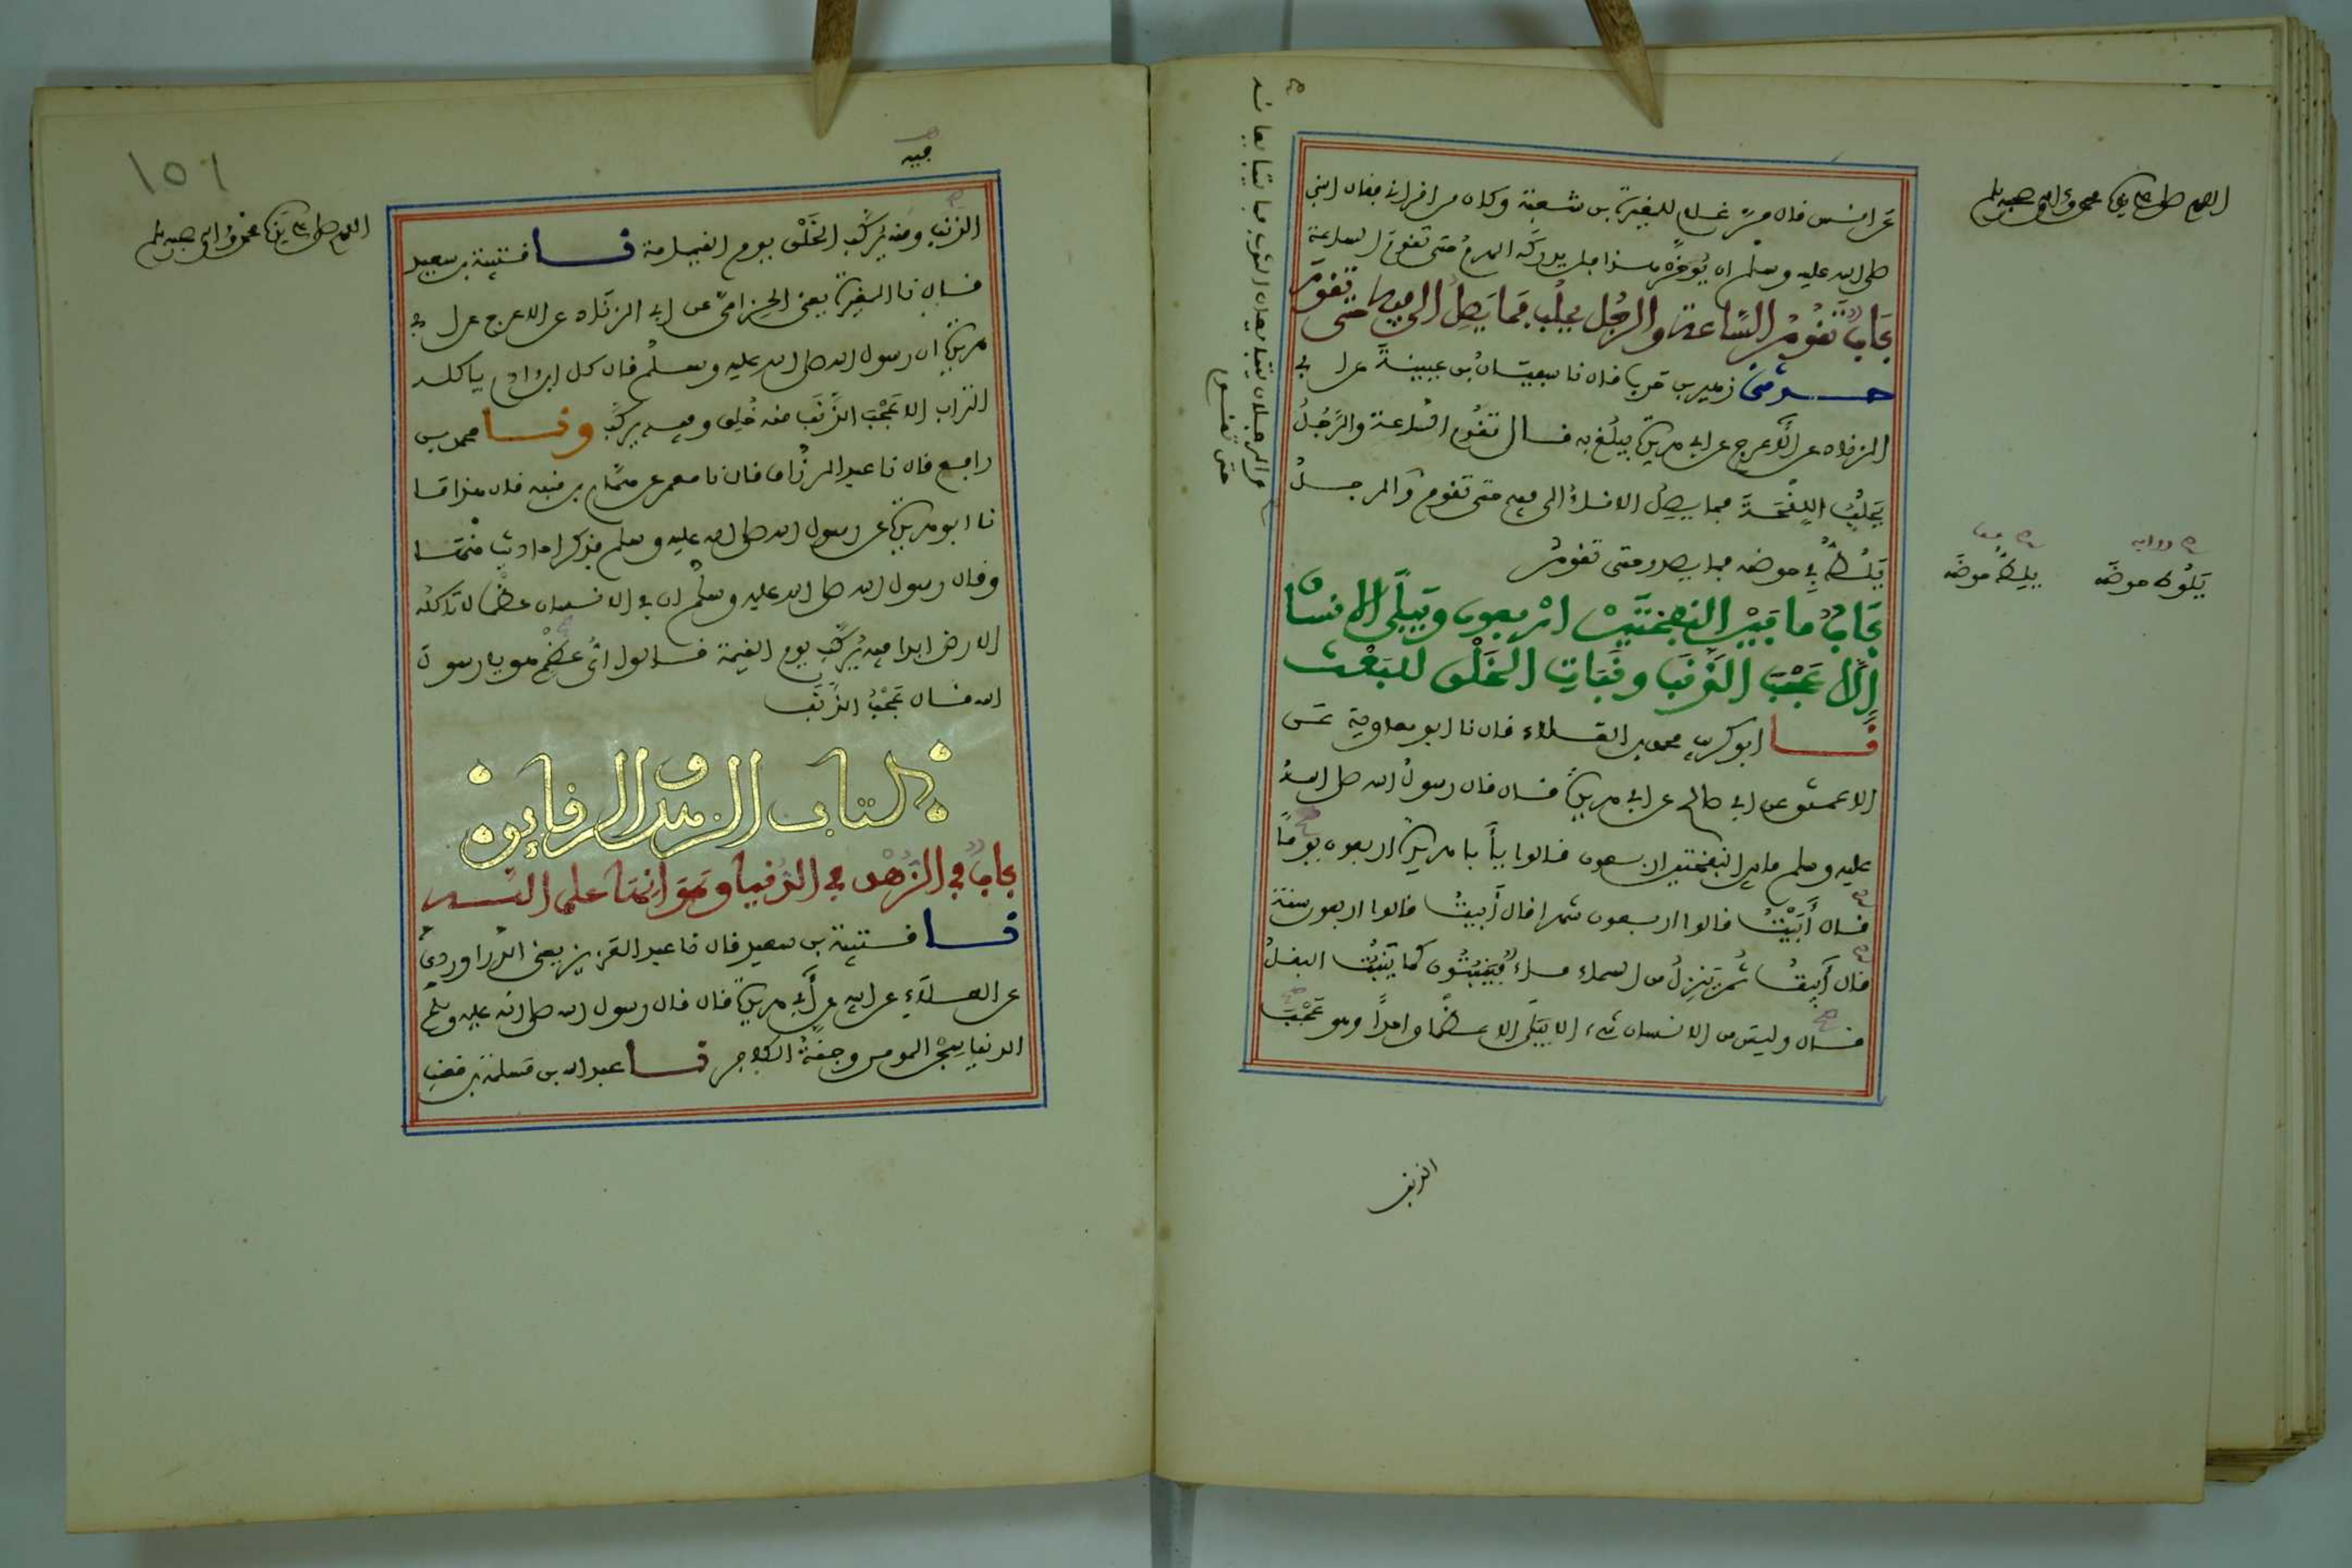 اللهم صل على سيدنا محمد وءاله وصحبه وسلم
عن انس قال مر غلام للمغيرة بن شعبة وكان من اقراني فقال النبي
صلى الله عليه وسلم ان يؤخر هذا فلن يدركه الهرم حتى تقوم الساعة
باب تقوم الساعة والرجل يحلب فما يصل الى فيه حتى تقوم
حدثني زهير بن حرب قال نا سفيان بن عيينة عن ابي
الزناد عن الاعرج عن ابي هريرة يبلغ به قال تقوم الساعة والرجل
يحلب اللقحة فما يصل الاناء الى فيه حتى تقوم والرجل
يلط في حوضه فما يصدر حتى تقوم
باب ما بين النفختين اربعون ويبلى الانسان
الا عجب الذنب ونبات الخلق للبعث
نا ابو كريب محمد بن العلاء قال نا ابو معاوية عن
الاعمش عن ابي صالح عن ابي هريرة قال قال رسول الله صلى الله
عليه وسلم ما بين النفختين اربعون قالوا يأبا هريرة اربعون يوما
قال أبيت قالوا اربعون شهرا قال أبيت قالوا اربعون سنة
قال أبيت ثم ينزل من السماء ماء فينبتون كما ينبت البقل
قال وليس من الانسان شيء الا يبلى الا عظما واحدا وهو عجب
والرجلان يتبايعان الثوب فما يتبايعانه
حتى تقوم
رواية
يلوط حوضه
يليط حوضه
الذنب
١٥٦
اللهم صل على سيدنا محمد وءاله وصحبه وسلم
فيه
الذنب ومنه يركب الخلق يوم القيامة نا قتيبة بن سعيد
قال نا المغيرة يعني الحزامي عن ابي الزناد عن الاعرج عن ابي
هريرة ان رسول الله صلى الله عليه وسلم قال كل ابن ادم ياكله
التراب الا عجب الذنب منه خلق وفيه يركب ونا محمد بن
رافع قال نا عبد الرزاق قال نا معمر عن همام بن منبه قال هذا ما
نا ابو هريرة عن رسول الله صلى الله عليه وسلم فذكر احاديث منها
وقال رسول الله صلى الله عليه وسلم ان في الانسان عظما لا تاكله
الارض ابدا فيه يركب يوم القيمة قالوا أي عظم هو يا رسول
الله قال عجب الذنب
كتاب الزهد والرقايق
باب في الزهد في الدنيا وهوانها على الله
نا قتيبة بن سعيد قال نا عبد العزيز يعني الدراوردي
عن العلاء عن ابيه عن أبي هريرة قال قال رسول الله صلى الله عليه وسلم
الدنيا سجن المومن وجنة الكافر نا عبد الله بن مسلمة بن قعنب